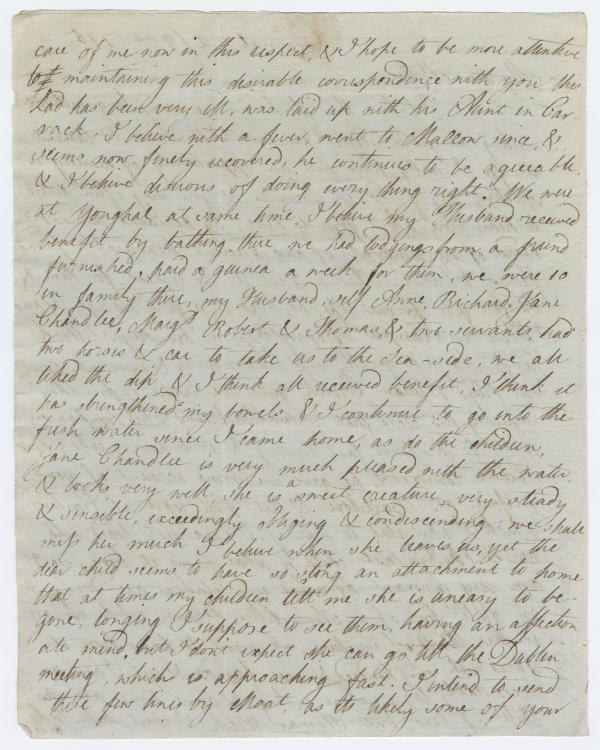 care of me now in this respect, & I hope to be more attentive
to maintaining this desirable correspondence with you, this
Lad has been very ill, was laid up with his Aunt in Car
rack, I believe with a fever, went to Mallow since, &
seems now finely recovered, he continues to be agreeable
& I believe desirous of doing every thing right. We were
at Yonghal at same time I believe my Husband received
benefit by bathing there, we had lodgings from a friend
furnished, paid a guinea a week for them, we were 10
in family there, my Husband, self Anne, Richard, Jane
Chandlee, Margt Robert & Thomas, & two servants, had
two horses & car to take us to the Sea-side, we all
liked the dip, & I think all received benefit, I think it
has strengthened my bowels & I continue to go into the
fresh water since I came home, as do the children,
Jane Chandlee is very much pleased with the water
& looks very well, she is a sweet creature, very steady
& sensible, exceedingly obliging & condescending we shall
miss her much I believe when she leaves us, yet the
dear child seems to have so strong an attachment to home
that at times my children tell me she is uneasy to be
gone, longing I suppose to see them, having an affection
ate mind, but I dont expect she can go till the Dublin
meeting, which is approaching fast. I intend to send
these few lines by Moat, as its likely some of your